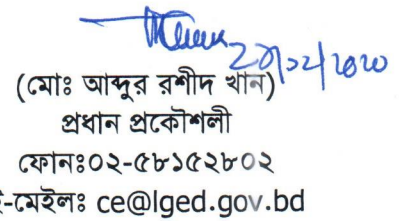 (মোঃ আব্দুর রশীদ খান)
প্রধান প্রকৌশলী
ফোনঃ০২-৫৮১৫২৮০২
ই-মেইলঃ ce@lged.gov.bd